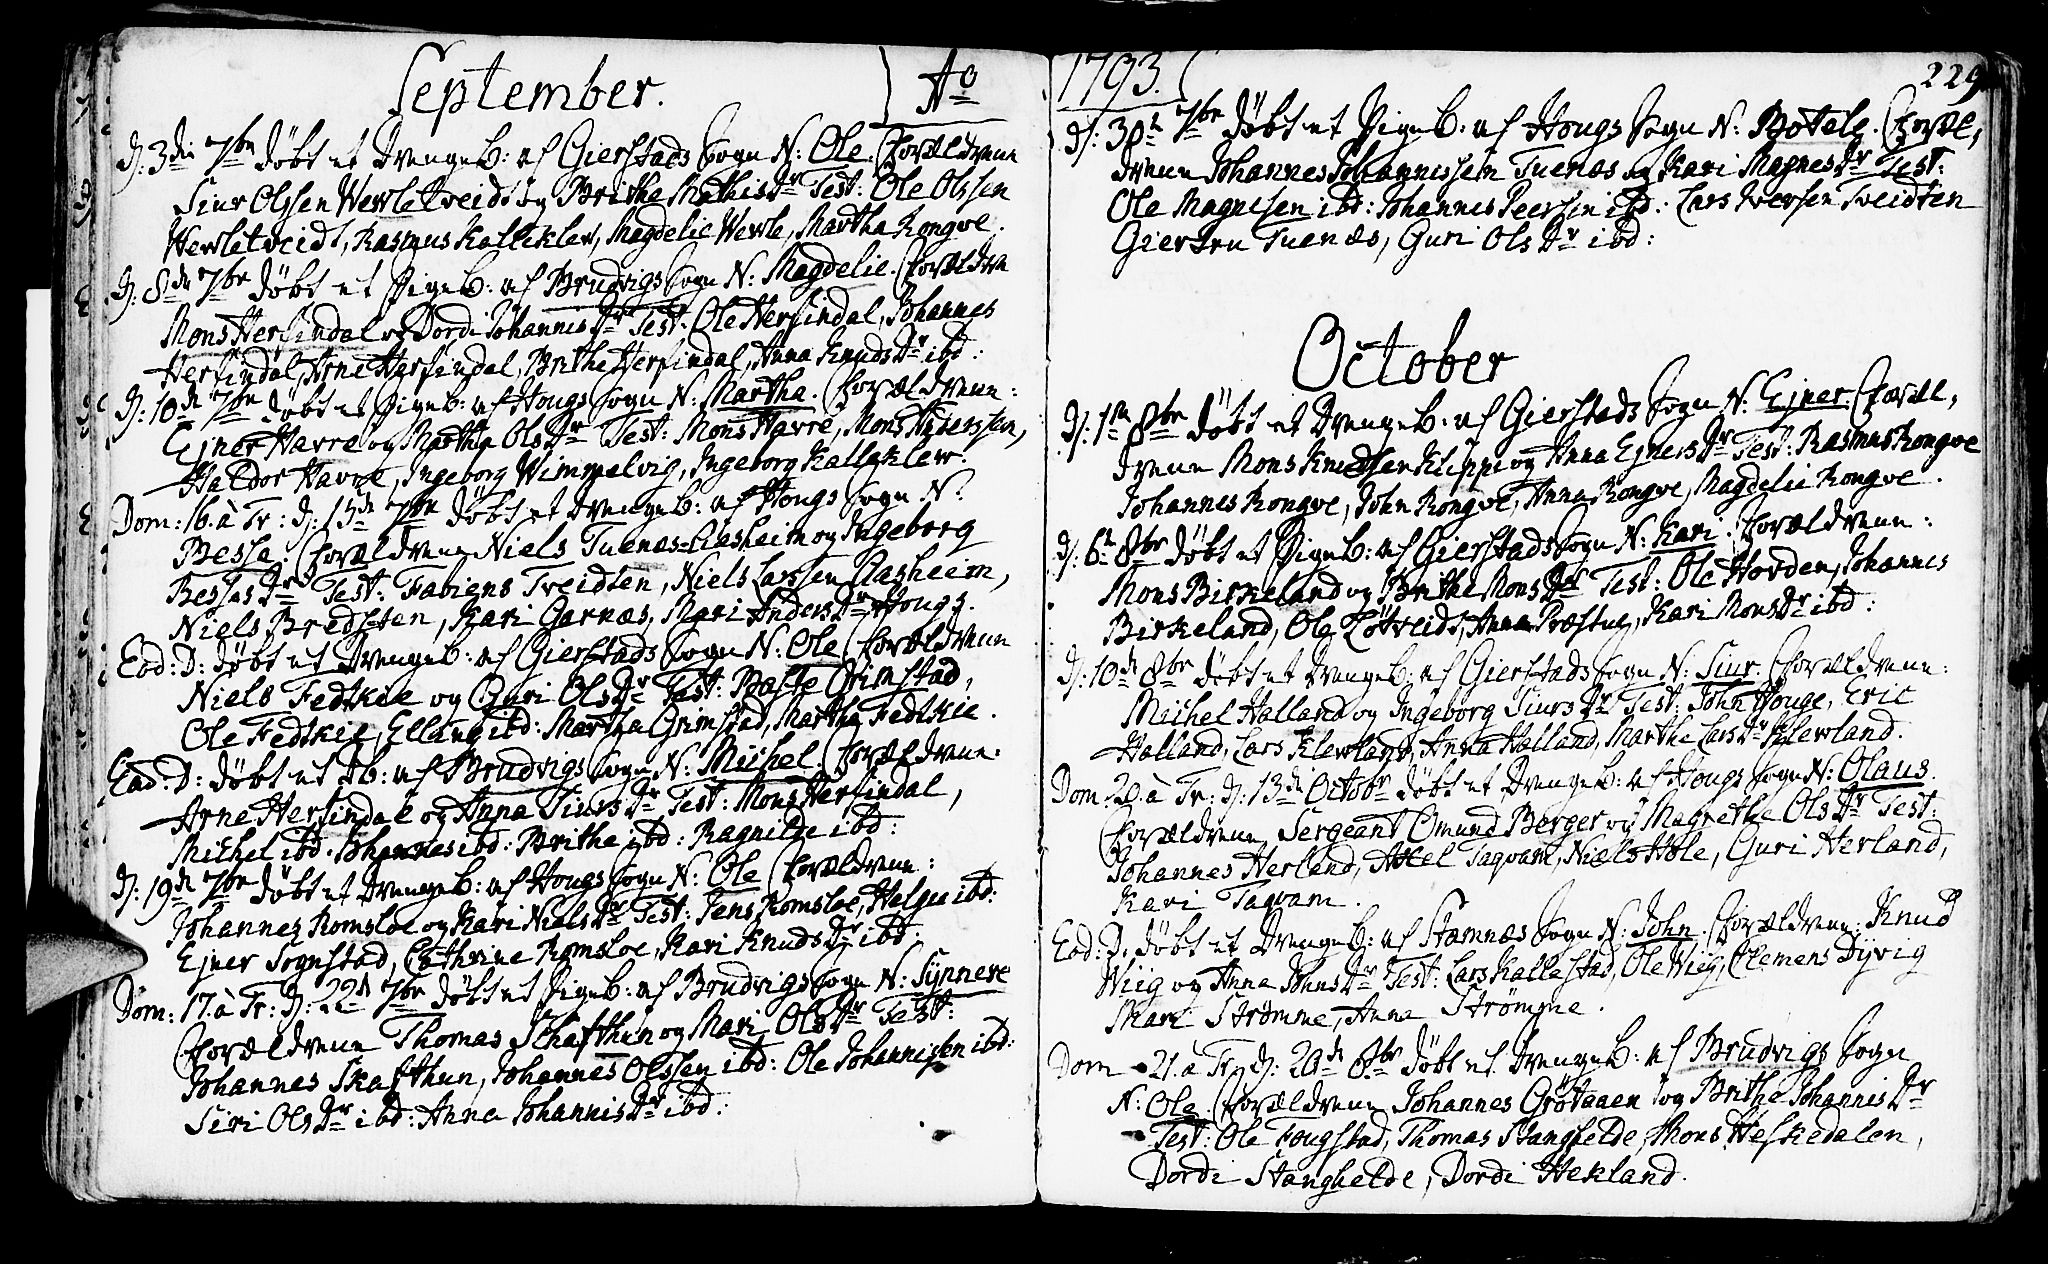 September. Ao
d: 3die 7br döbt et Drengeb: af Gierstads Sogn N: Ole. Forældrene
Siur Olssen Wewletveidt og Brithe MathisDr Test: Ole Olssen
Wewletveidt, Rasmus Kalleklev, Magdelie Wewle, Martha Rongve.
d: 8de 7br döbt et Pigeb: af Brudvigs Sogn N: Magdelie. Forældre
Mons Herfindal og Dordi JohannisDr Test: Ole Herfindal, Johannes
Herfindal, Arne Herfindal, Brithe Herfindal, Anna KnudsDr ibd:
d: 10de 7br döbt et Pigeb: af Hougs Sogn N: Martha. Forældrene:
Ejner Havre og Martha OlsDr Test: Mons Havre, Mons
Haldor Havre, Ingeborg Wimmelvig, Ingeborg Kalleklev.
Dom: 16. à Tr: d: 15de 7br döbt et Drengeb: af Hougs Sogn N:
Bessa. Forældrene Niels Tuenæs-Aasheim og Ingeborg
BessesDr Test: Fabiens Tveidten, Niels Larssen Aasheim,
Niels Bredsten, Kari Garnæs, Mari AndersDr Houg.
Eod: D: döbt et Drengeb: af Gierstads Sogn N: Ole Forældrene
Niels Fedtkie og Guri OlsDr Test: Baste Grimstad,
Ole Fedtkie, Elling ibd: Martha Grimstad, Martha Fedtkie.
Eod: D: döbt et Db: af Brudvigs Sogn N: Michel. Forældrene:
Arne Herfindal og Anna SiursDr Test: Mons Herfindal,
Michel ibd. Johannes ibd: Brithe ibd: Ragnilde ibd:
d: 19de 7br döbt et Drengeb: af Hougs Sogn N: Ole Forældrene:
Johannes Romsloe og Kari NielsDr Test: Jens Romsloe, Helge ibd:
Ejner Sognstad, Cathrine Romsloe, Kari KnudsDr ibd:
Dom: 17. à Tr: d: 22d 7br döbt et Pigeb: af Brudvigs Sogn N: Synneve
Forældrene Thomas Skafthun og Mari OlsDr Test:
Johannes Skafthun, Johannes Olssen ibd: Ole Johannissen ibd:
Siri OlsDr ibd: Anna JohannisDr ibd:
1793. 229
d: 30t 7br döbt et Pigeb: af Hougs Sogn N: Botele. Foræl,
drene Johannes Johannessen Tuenæs og Kari MagnesDr Test:
Ole Magnesen ibd: Johannes Peersen ibd: Lars Iversen Tveidten
Giertru Tuenæs, Guri OlsDr ibd:
October
d: 1ste 8br döbt et Drengeb: af Gierstads Sogn N: Ejner Foræl,
drene Mons Knudsen Klippe og Anna EjnersDr Test: Rasmus Rongve
Johannes Rongve, John Rongve, Anna Rongve, Magdelie Rongve.
d: 6t 8br döbt et Pigeb: af Gierstads Sogn N: Kari. Forældrene:
Mons Birkeland og Brithe MonsDr Test: Ole Horden, Johannes
Birkeland, Ole Lötveidt, Anna Præstue, Kari MonsDr ibd:
d: 10de 8br döbt et Drengeb: af Gierstads Sogn N: Siur. Forældrene:
Michel Halland og Ingeborg SiursDr Test: John Houge, Eric
Halland, Lars Klewland, Anna Halland, Marthe LarsDr Klewland.
Dom: 20. à Tr: d: 13de Octobr döbt et Drengeb: af Hougs Sogn N: Olaus.
Forældrene, Sergeant Omund Berger og Magrethe OlsDr Test:
Johannes Herland, Axel Taqvam, Niels Hole, Guri Herland,
Kari Taqvam.
Eod: D: döbt et Drengeb: af Stamnæs Sogn N: John. Forældrene: Knud
Wiig og Anna JohnsDr Test: Lars Kallestad, Ole Wiig, Clemens Dyvig
Mari Strömme, Anna Strömme.
Dom 21. à Tr. d: 20de 8br döbt et Drengeb: af Brudvigs Sogn
N: Ole Forældrene Johannes Grötaaen og Brithe JohannisDr
Test: Ole Fougstad, Thomas Stanghelde, Mons Heskedalen,
Dordi Stanghelde, Dordi Hekland.